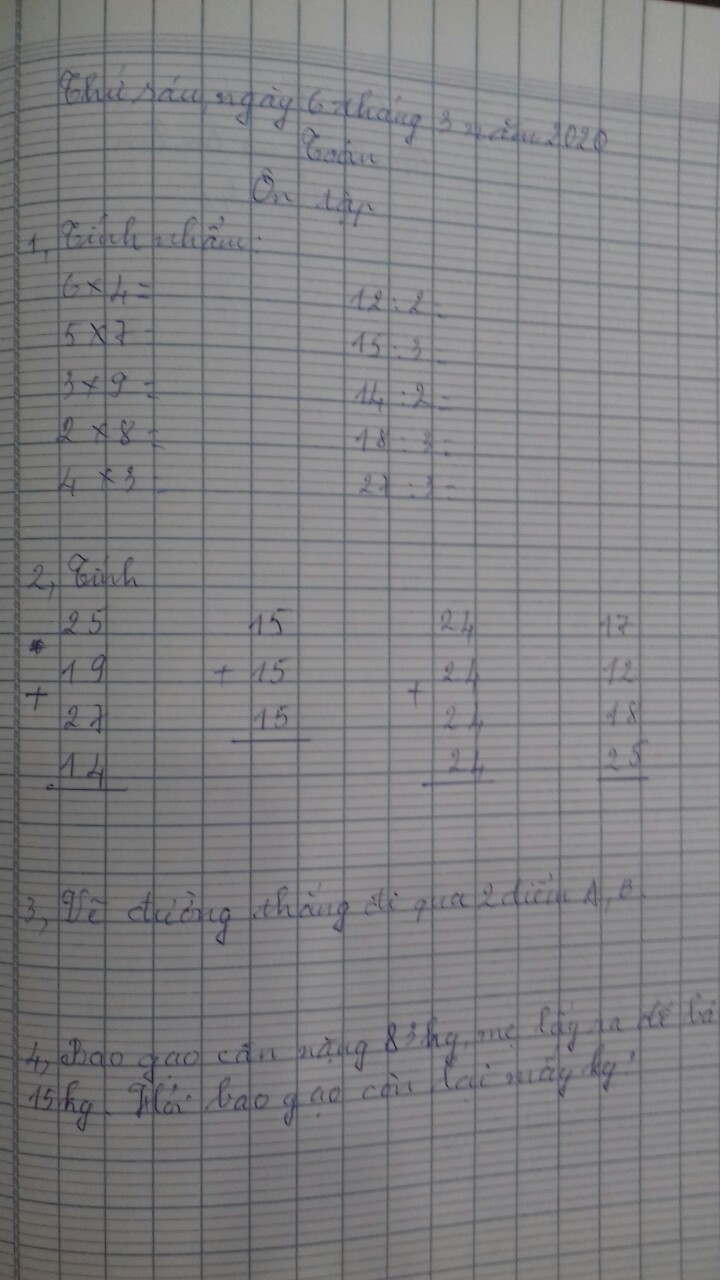 Thứ sáu, ngày 6 tháng 3 năm 2020
Toán
Ôn tập
1, Tính nhẩm:
6 x 4 = 12 : 2 =
5 x 7 = 15 : 3 =
3 x 9 = 14 : 2 =
2 x 8 = 18 : 3 =
4 x 3 = 27 : 3 =
2, Tính
25 15 24 17
19 + 15 24 12
+ +
27 15 24 18
14 24 25
3, Vẽ đường thẳng đi qua 2 điểm A, B.
4, Bao gạo cân nặng 83kg, mẹ lấy ra để bá
15kg. Hỏi bao gạo còn lại mấy kg?